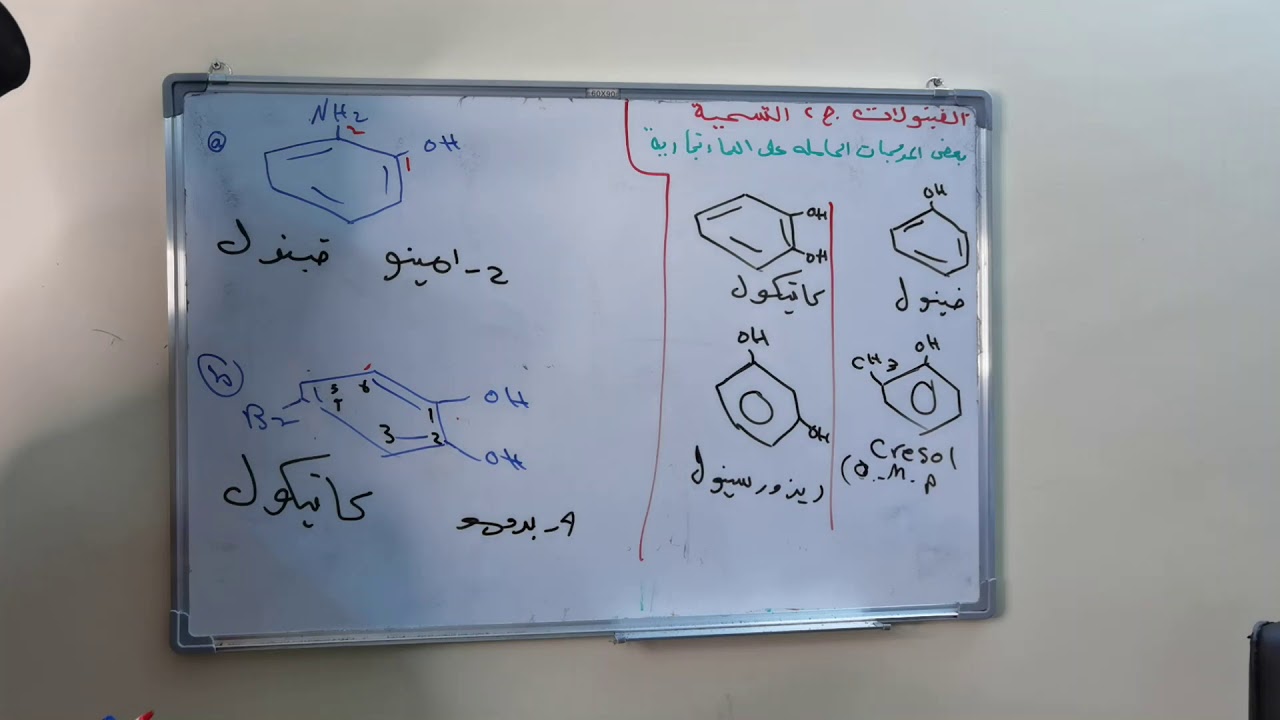 الفينولات .ج٢ التسمية
بعض المركبات الحاصله على اسماء تجارية
OH
فينول
OH
OH
كاتيكول
OH
CH3
Cresol
(O.-M.P
OH
OH
ريزورسينول
a
NH2
2
OH
1
2-امينو فينول
b
Br
5
6
1
3
2
OH
OH
4-برومو كاتيكول